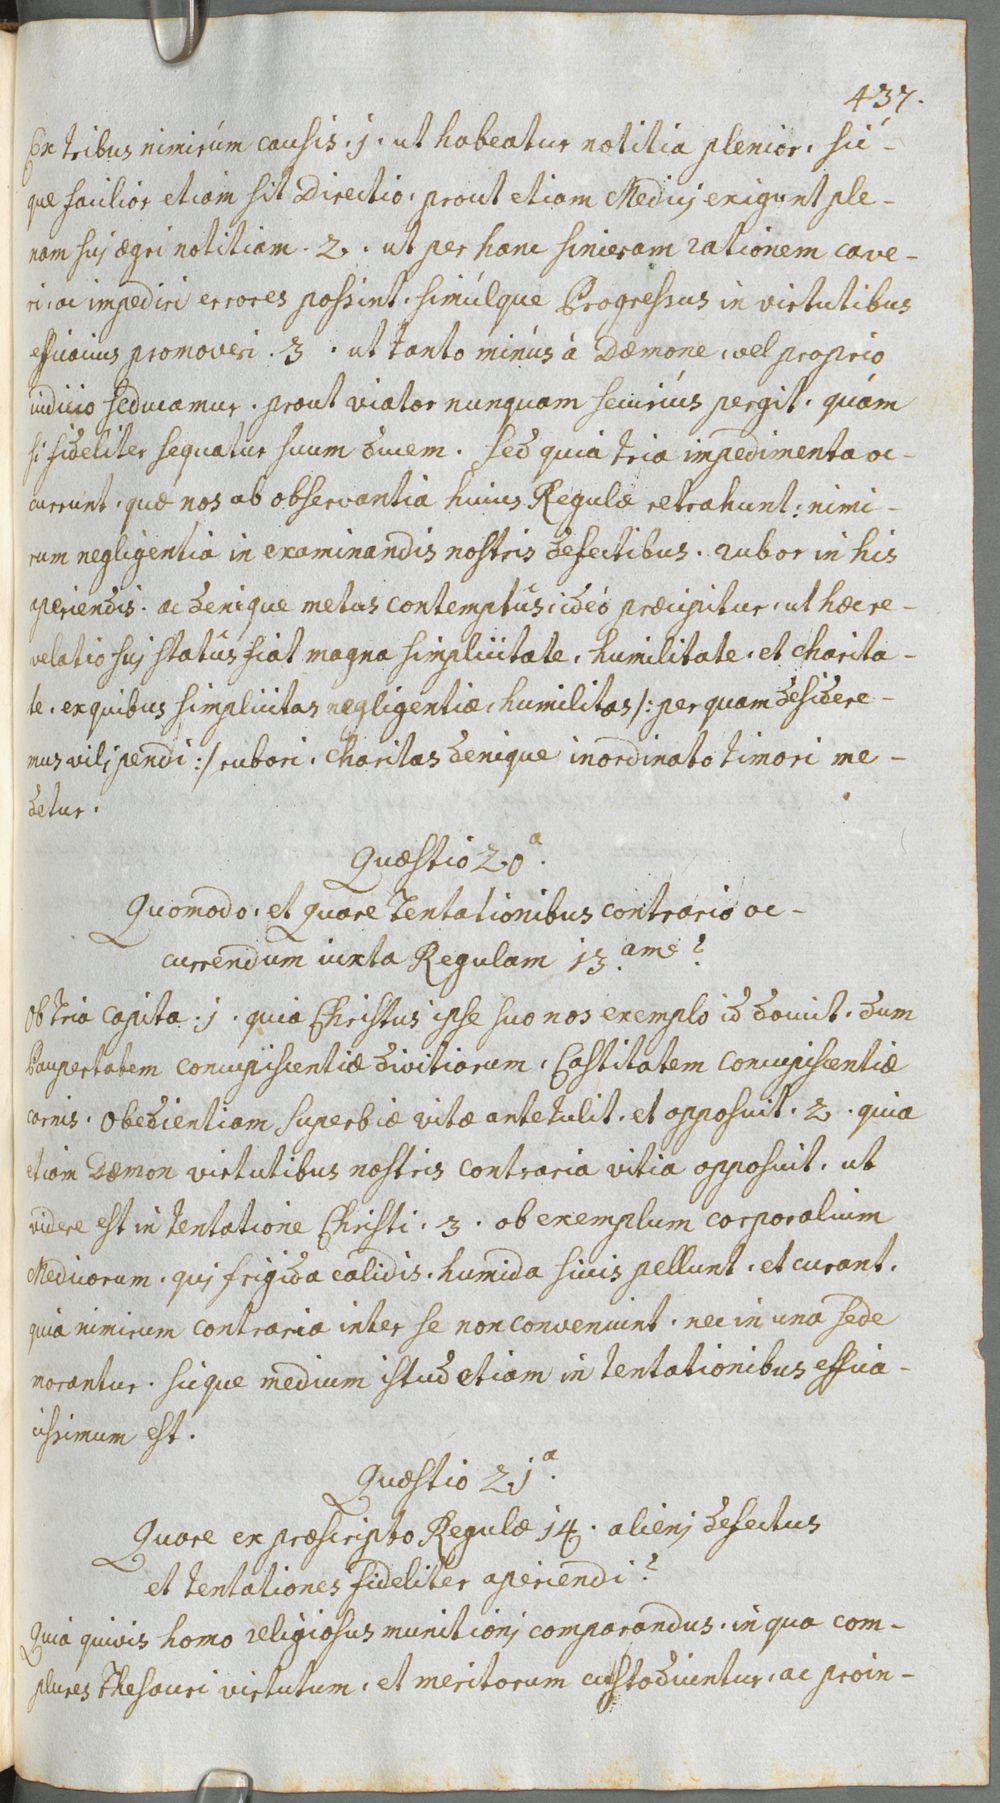 437.
Ex tribus nimirúm causis. j. ut habeatur notitia plenior, sic-
que facilior etiam sit Directio, prout etiam Medicj exigunt ple-
nam suj ægri notitiam. 2. ut per hanc sinceram rationem cave-
ri, ac impediri errores possint, simúlque Progressus in virtutibus
efficacius promoveri. 3. ut tanto minús à Dæmone, vel proprio
iudicio seducamur, prout viator nunquam securiús pergit, quám
si fideliter sequatur suum ducem. Sed quia tria impedimenta oc-
currunt, quæ nos ab observantia huius Regulæ retrahunt: nimi-
rum negligentia in examinandis nostris defectibus, rubor in his
aperiendis, ac denique metus contemptûs, ideó præcipitur, ut hæc re-
velatio suj statûs fiat magna simplicitate, humilitate, et charita-
te, ex quibus simplicitas negligentiæ, humilitas /: per quam desidere-
mus vilj pendi :/ rubori, charitas denique inordinato timori me-
detur.
Quæstio 20.ª
Quomodo, et Quare Tentationibus contrario oc-
currendum iuxta Regulam 13.amᵉ?
Ob tria capita. j. quia Christus ipse suo nos exemplo id docuit, dum
Paupertatem concupiscentiæ divitiarum, Castitatem concupiscentiæ
carnis, Obedientiam Superbiæ vitæ antetulit, et opposuit. 2. quia
etiam Dæmon virtutibus nostris contraria vitia opposuit, ut
videre est in tentatione Christi. 3. ob exemplum corporalium
Medicorum, quj frigida calidis, humida siccis pellunt, et curant,
quia nimirum contraria inter se non conveniunt, nec in una sede
morantur, sicque medium istud etiam in tentationibus effica-
cissimum est.
Quæstio 2j.ª
Quare ex præscripto Regulæ j4. alienj defectus
et tentationes fideliter aperiendi?
Quia quivis homo religiosus munitionj comparandus, in qua com-
plures Thesauri virtutum, et meritorum custodiuntur, ac proin-